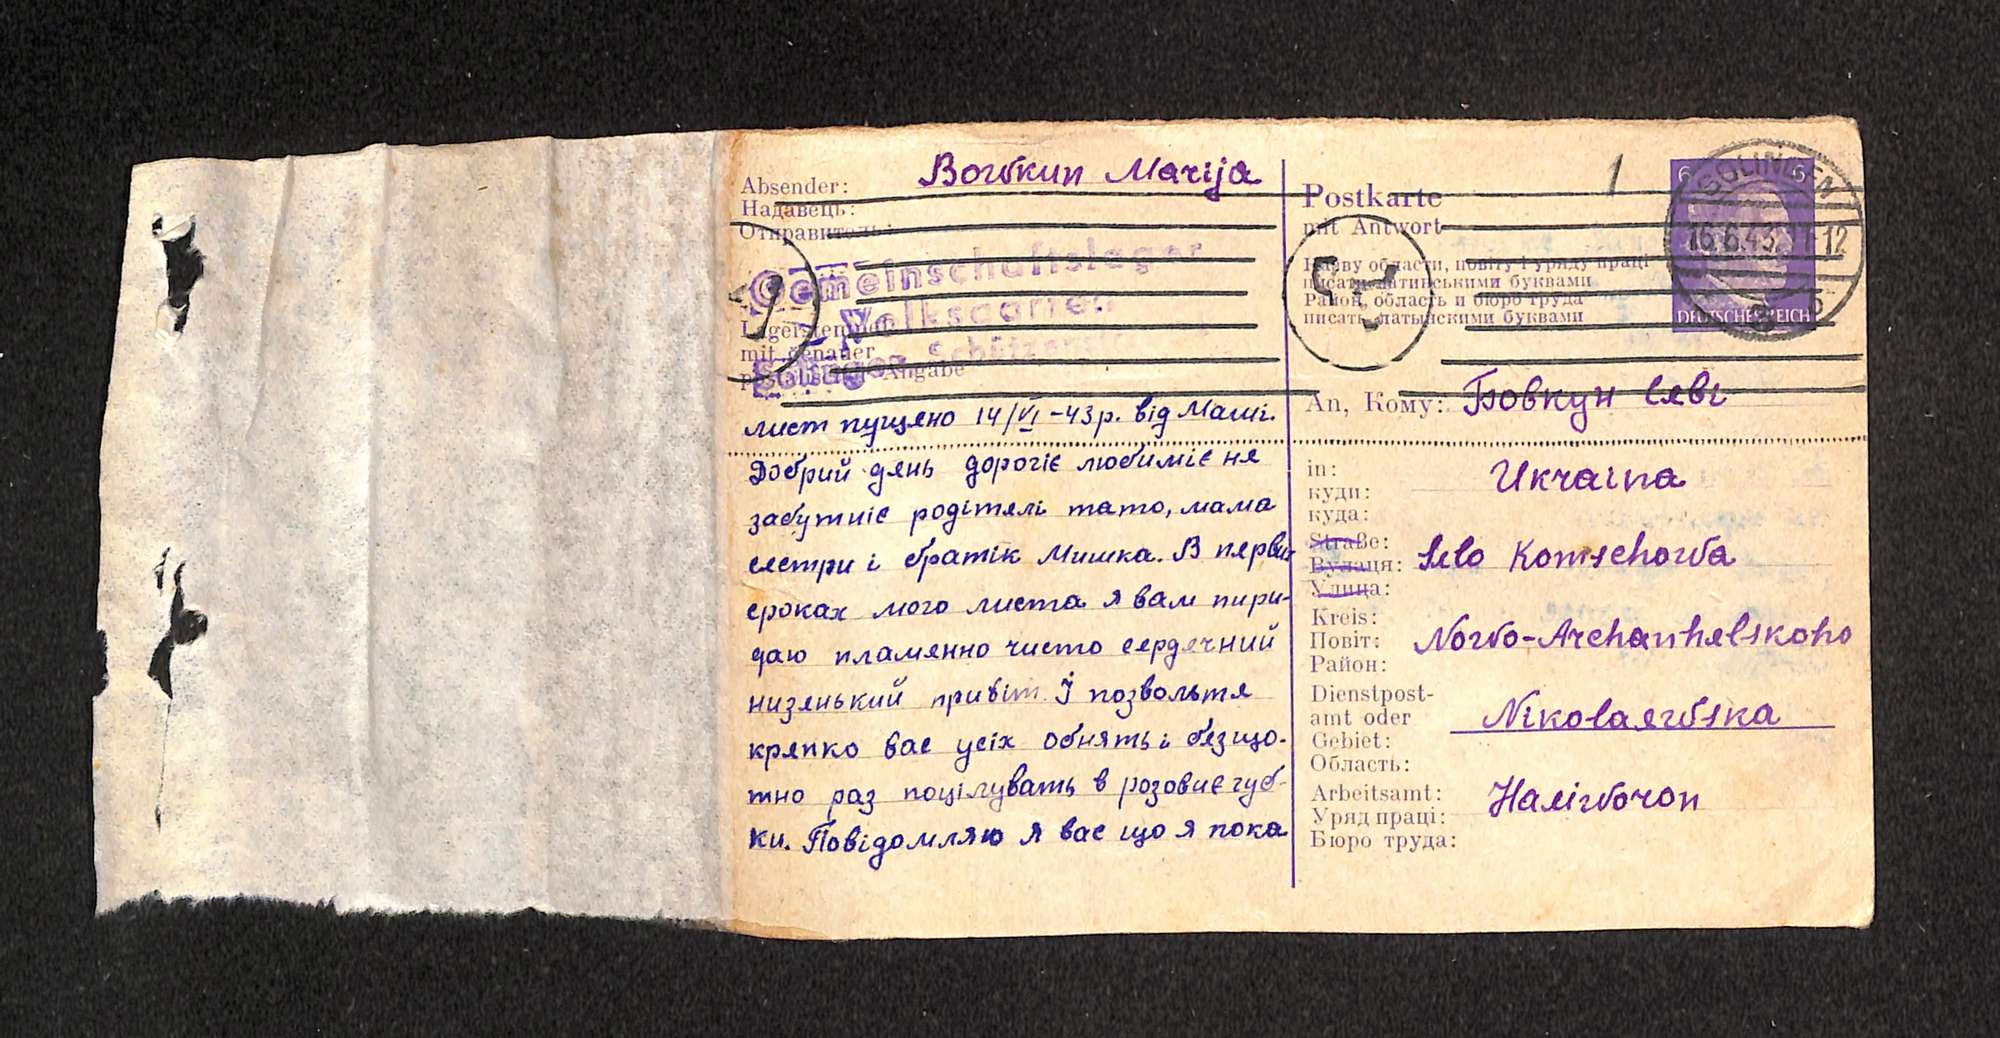 Absender:
Надавець:
Отправитель:
Bowkun Marija
Gemeinschaftslager
Volksgarten
Solingen Schützenstr
Lagerstempel
mit genauer
Angabe
лист пущено 14/VI -43 р. від Маші.
Добрий день дорогіє любиміє не
забутніє родітелі тато, мама
сестри і братік Мишка. В первих
сроках мого листа я вам пири-
даю пламенно чисто сердечний
низенький привіт. Й позвольте
крепко вас усіх обнять і безщо-
тно раз поцілувать в розовиє губ-
ки. Повідомляю я вас що я пока
Postkarte
mit Antwort
1
Назву области, повіту і уряду праці
писати латинськими буквами
Район, область и бюро труда
писать латынскими буквами
6 6
DEUTSCHES REICH
SOLINGEN
16.6.43. 11-12
An, Кому: Бовкун Єеві
in:
куди:
куда:
Ukraina
Straße:
Вулиця:
Улица:
Selo Komischowka
Kreis:
Повіт:
Район:
Nowo-Archanhelskoho
Dienstpost-
amt oder
Gebiet:
Область:
Nikolaewska
Arbeitsamt:
Уряд праці:
Бюро труда: